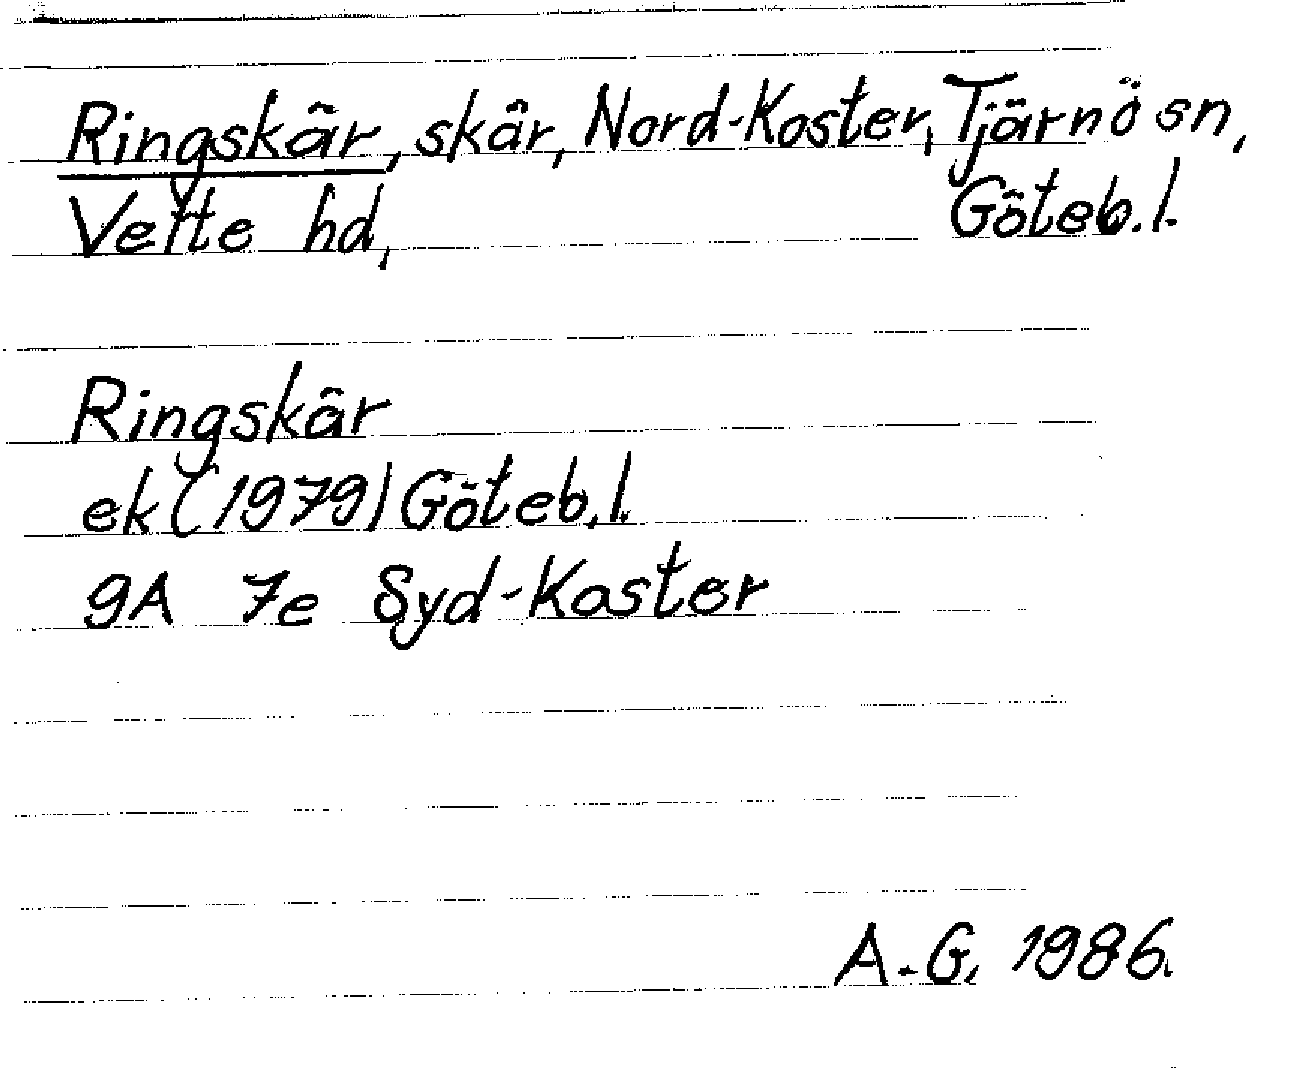 Ringskär, skär, Nord-Koster, Tjärnö sn,
Vette hd, Göteb. l.
Ringskär
ek (1979) Göteb. l.
9A 7e Syd-Koster
A.G. 1986.